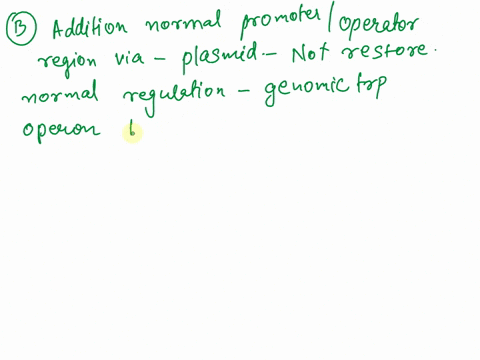 B Addition normal promoter/operator
region via - plasmid - Not restore.
normal regulation - genomic trp
operon